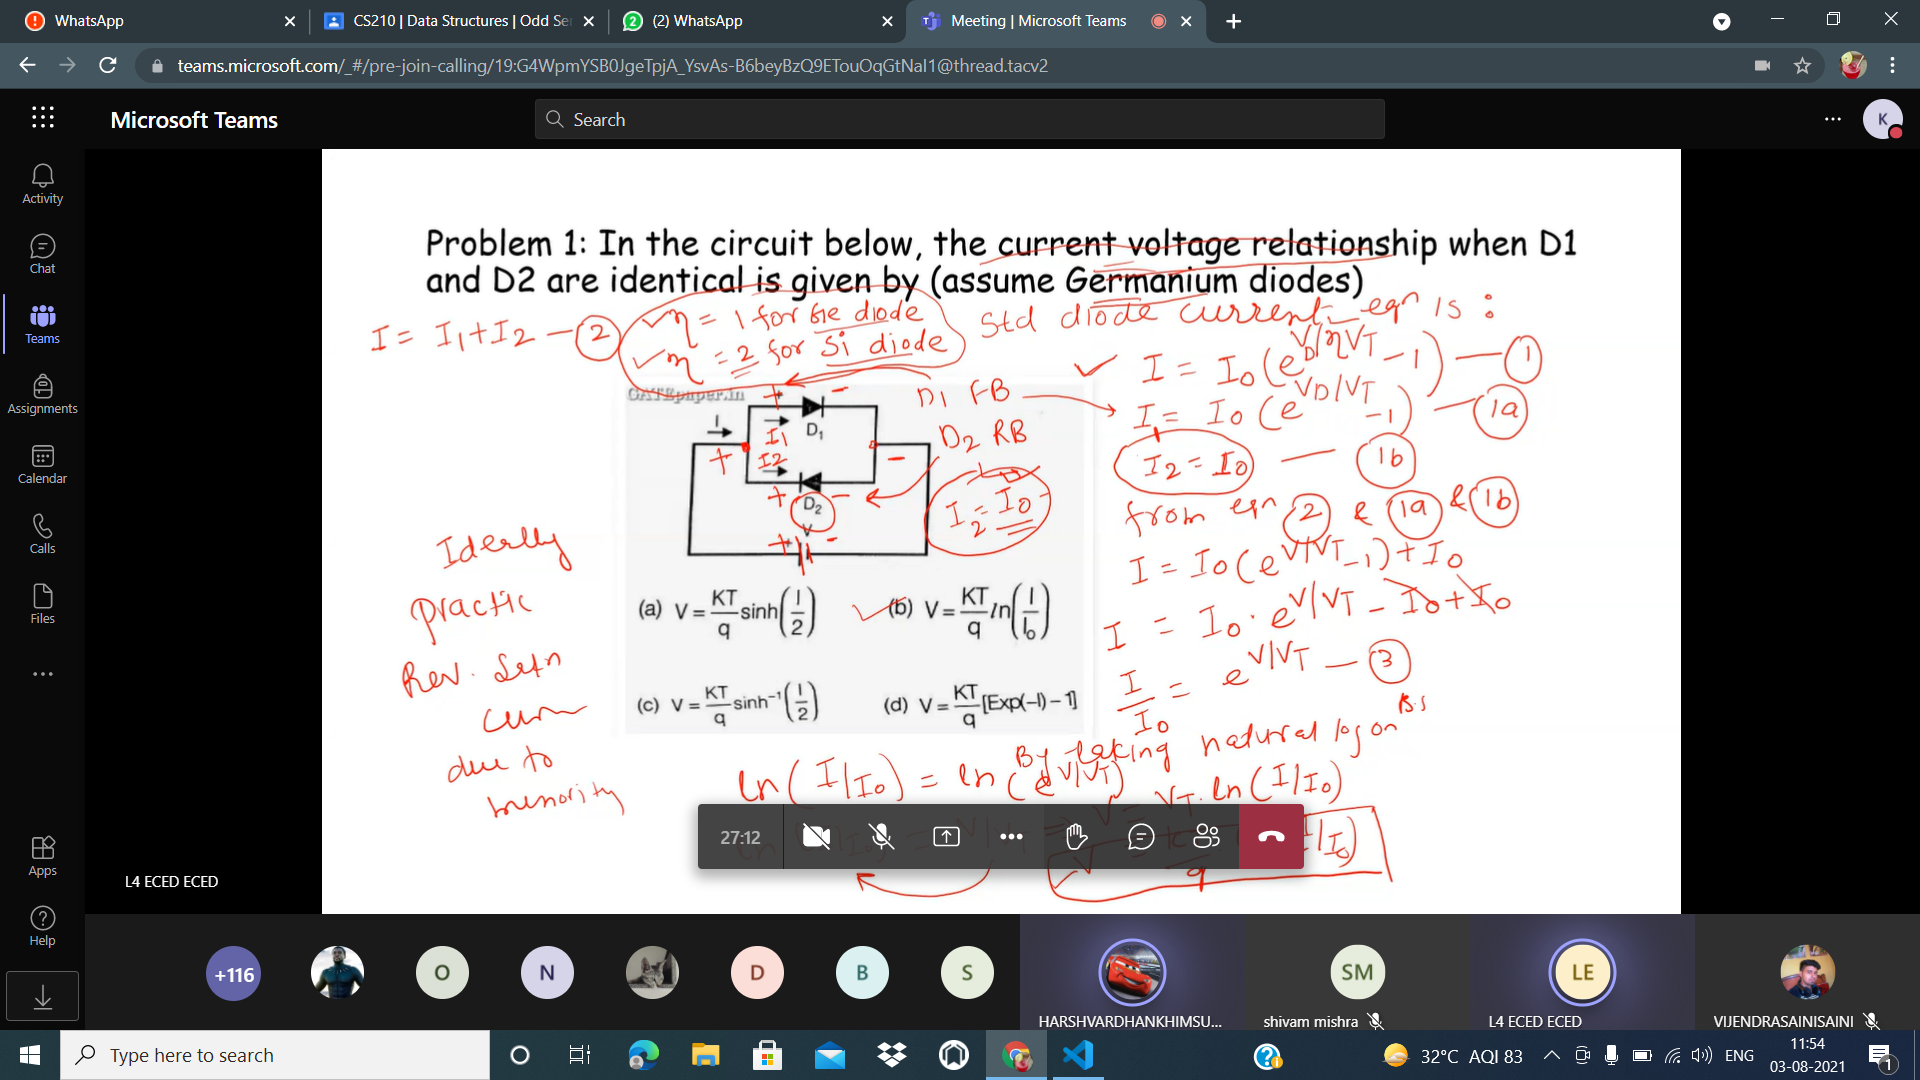 WhatsApp
CS210 | Data Structures | Odd Se
(2) WhatsApp
Meeting | Microsoft Teams
teams.microsoft.com/_#/pre-join-calling/19:G4WpmYSB0JgeTpjA_YsvAs-B6beyBzQ9ETouOqGtNaI1@thread.tacv2
Microsoft Teams
Search
K
Activity
Chat
Teams
Assignments
Calendar
Calls
Files
Apps
Help
Problem 1: In the circuit below, the current voltage relationship when D1
and D2 are identical is given by (assume Germanium diodes)
I = I1 + I2 — 2
η = 1 for Ge diode
η = 2 for Si diode
Std diode current eqn is :
I = I0 (e^VD/ηVT - 1) — 1
I1 = I0 (e^VD/VT - 1) — 1a
I2 = I0 — 1b
from eqn 2 & 1a & 1b
I = I0 (e^V/VT - 1) + I0
I = I0 . e^V/VT - I0 + I0
I/I0 = e^V/VT — 3
By taking natural log on B.S
ln (I/I0) = ln (e^V/VT)
V = VT . ln (I/I0)
GATEpaper.in
D1 FB
D2 RB
I2 = I0
I
I1
I2
D1
D2
V
+ -
(a) V = KT/q sinh(I/2)
(b) V = KT/q ln(I/I0)
(c) V = KT/q sinh⁻¹(I/2)
(d) V = KT/q [Exp(-I) - 1]
Ideally
practic
Rev. Satn
curr
due to
minority
27:12
L4 ECED ECED
+116
O
N
D
B
S
SM
LE
HARSHVARDHANKHIMSU...
shivam mishra
L4 ECED ECED
VIJENDRASAINISAINI
Type here to search
32°C AQI 83
ENG
11:54
03-08-2021
1